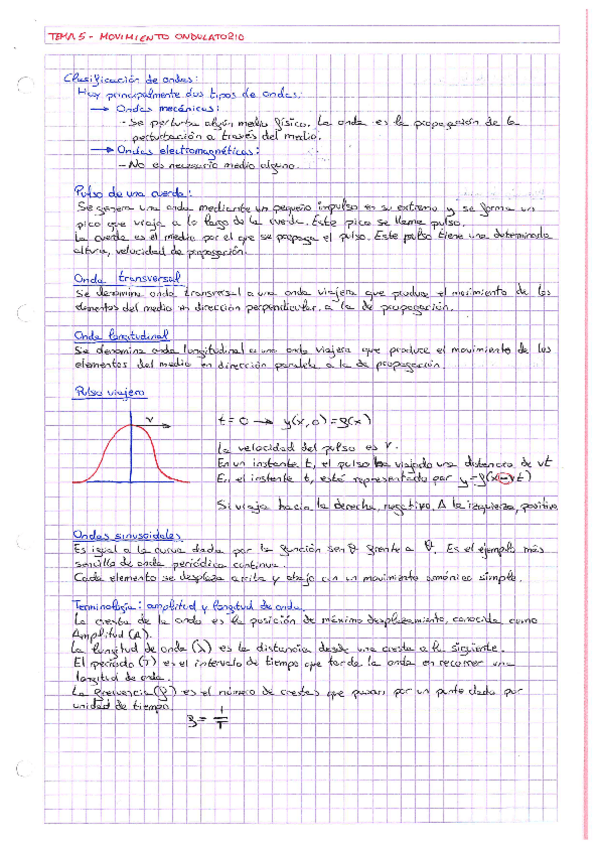 TEMA 5 - MOVIMIENTO ONDULATORIO
Clasificación de ondas:
Hay principalmente dos tipos de ondas:
→ Ondas mecánicas:
- Se perturba algún medio físico. La onda es la propagación de la
perturbación a través del medio.
→ Ondas electromagnéticas:
- No es necesario medio alguno.
Pulso de una cuerda:
Se genera una onda mediante un pequeño impulso en su extremo y se forma un
pico que viaja a lo largo de la cuerda. Este pico se llama pulso.
La cuerda es el medio por el que se propaga el pulso. Este pulso tiene una determinada
altura, velocidad de propagación.
Onda transversal
Se denomina onda transversal a una onda viajera que produce el movimiento de los
elementos del medio en dirección perpendicular a la de propagación.
Onda longitudinal
Se denomina onda longitudinal a una onda viajera que produce el movimiento de los
elementos del medio en dirección paralela a la de propagación.
Pulso viajero
v
t=0 → y(x,0)=f(x)
La velocidad del pulso es v.
En un instante t, el pulso ha viajado una distancia de vt
En el instante t, está representado por y=f(x-vt)
Si viaja hacia la derecha, negativo. A la izquierda, positivo
Ondas sinusoidales
Es igual a la curva dada por la función senθ frente a θ. Es el ejemplo más
sencillo de onda periódica continua.
Cada elemento se desplaza arriba y abajo con un movimiento armónico simple.
Terminología: amplitud y longitud de onda.
La cresta de la onda es la posición de máximo desplazamiento, conocida como
Amplitud (A).
La longitud de onda (λ) es la distancia desde una cresta a la siguiente.
El periodo (T) es el intervalo de tiempo que tarda la onda en recorrer una
longitud de onda.
La frecuencia (f) es el número de crestas que pasan por un punto dado por
unidad de tiempo.
f = 1/T